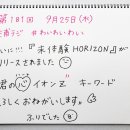 第181回 9月25日(木)
#わいわいわい
いに!!!『未体験HORIZON』が
リリースされました
君の♡イオンズ キーワード
ろしくおねがいします。
ふりでした